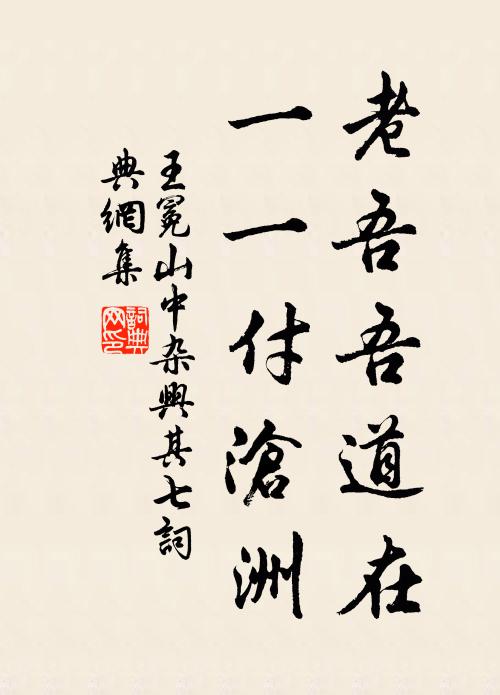 老吾吾道在
一一付滄洲
王冕山中杂興其七詞
典網集
詞典网印